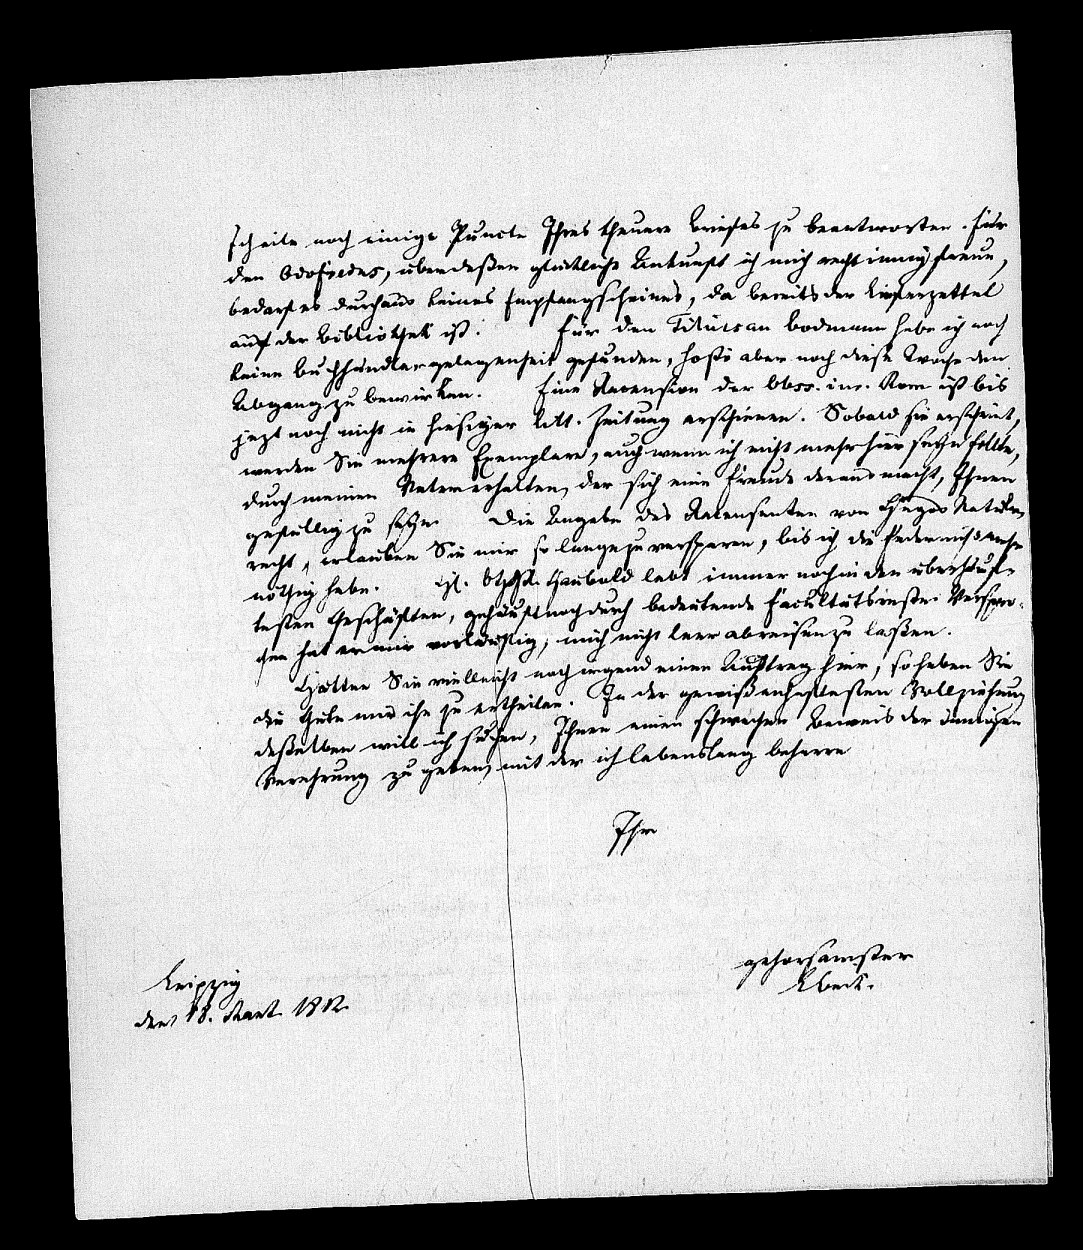 ich eile noch einige Puncte Ihres theuern Briefes zu beantworten. Für
den Odofredus, über deßen glückliche Ankunft ich mich recht innig freue,
bedarf es durchaus keines Empfangscheines, da bereits der Lieferzettel
auf der Bibliothek ist. Für den Titul an Bodmann habe ich noch
keine Buchhändlergelegenheit gefunden, hoffe aber noch diese Woche den
Abgang zu bewirken. Eine Recension der Obss. iur. Rom ist bis
jezt noch nicht in hiesiger Litt. Zeitung erschienen. Sobald sie erscheint,
werden Sie mehrere Exemplare, auch wenn ich nicht mehr hier seyn sollte,
durch meinen Vater erhalten, der sich eine Freude daraus macht, Ihnen
gefällig zu seyn. Die Angabe des Recensenten von Hugos Natur-
recht, erlauben Sie mir so lange zu versparen, bis ich die Feder nicht mehr
nöthig habe. Haubold lebt immer noch in den überhäuf-
testen Geschäften, gehäuft noch durch bedeutende Facultätsreste. Verspro-
chen hat er mir vorläufig, mich nicht leer abreisen zu laßen.
Hätten Sie vielleicht noch irgend einen Auftrag hier, so haben Sie
die Güte mir ihn zu ertheilen. In der gewißenhaftesten Vollziehung
deßelben will ich suchen, Ihnen einen schwachen Beweis der innigen
Verehrung zu geben, mit der ich lebenslang beharre
Ihr
gehorsamster
Beck.
Leipzig
den 18. Mart. 1812.